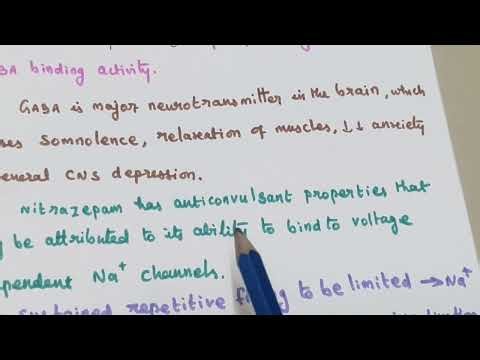 BA binding activity.
GABA is major neurotransmitter in the brain, which
ses somnolence, relaxation of muscles, ↓↓ anxiety
eneral CNS depression.
Nitrazepam has anticonvulsant properties that
y be attributed to its ability to bind to voltage
pendent Na⁺ channels.
sustained repetitive firing to be limited → Na⁺